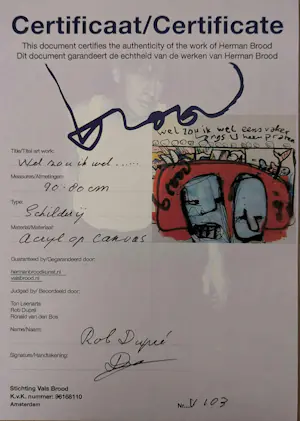 Certificaat/Certificate
This document certifies the authenticity of the work of Herman Brood
Dit document garandeert de echtheid van de werken van Herman Brood
brood
wel zou ik wel eens vaker
Title/Titel art work:
Wel zou ik wel......
Measures/Afmetingen:
90.80cm
Type:
Schilderij
brood
Material/Materiaal:
Acryl op canvas
Guaranteed by/Gegarandeerd door:
hermanbroodkunst.nl
valsbrood.nl
Judged by/ Beoordeeld door:
Ton Leenarts
Rob Dupré
Ronald van den Bos
Name/Naam:
Rob Dupré
Signature/Handtekening:
Stichting Vals Brood
K.v.K. nummer: 96168110
Amsterdam
Nr. V 103